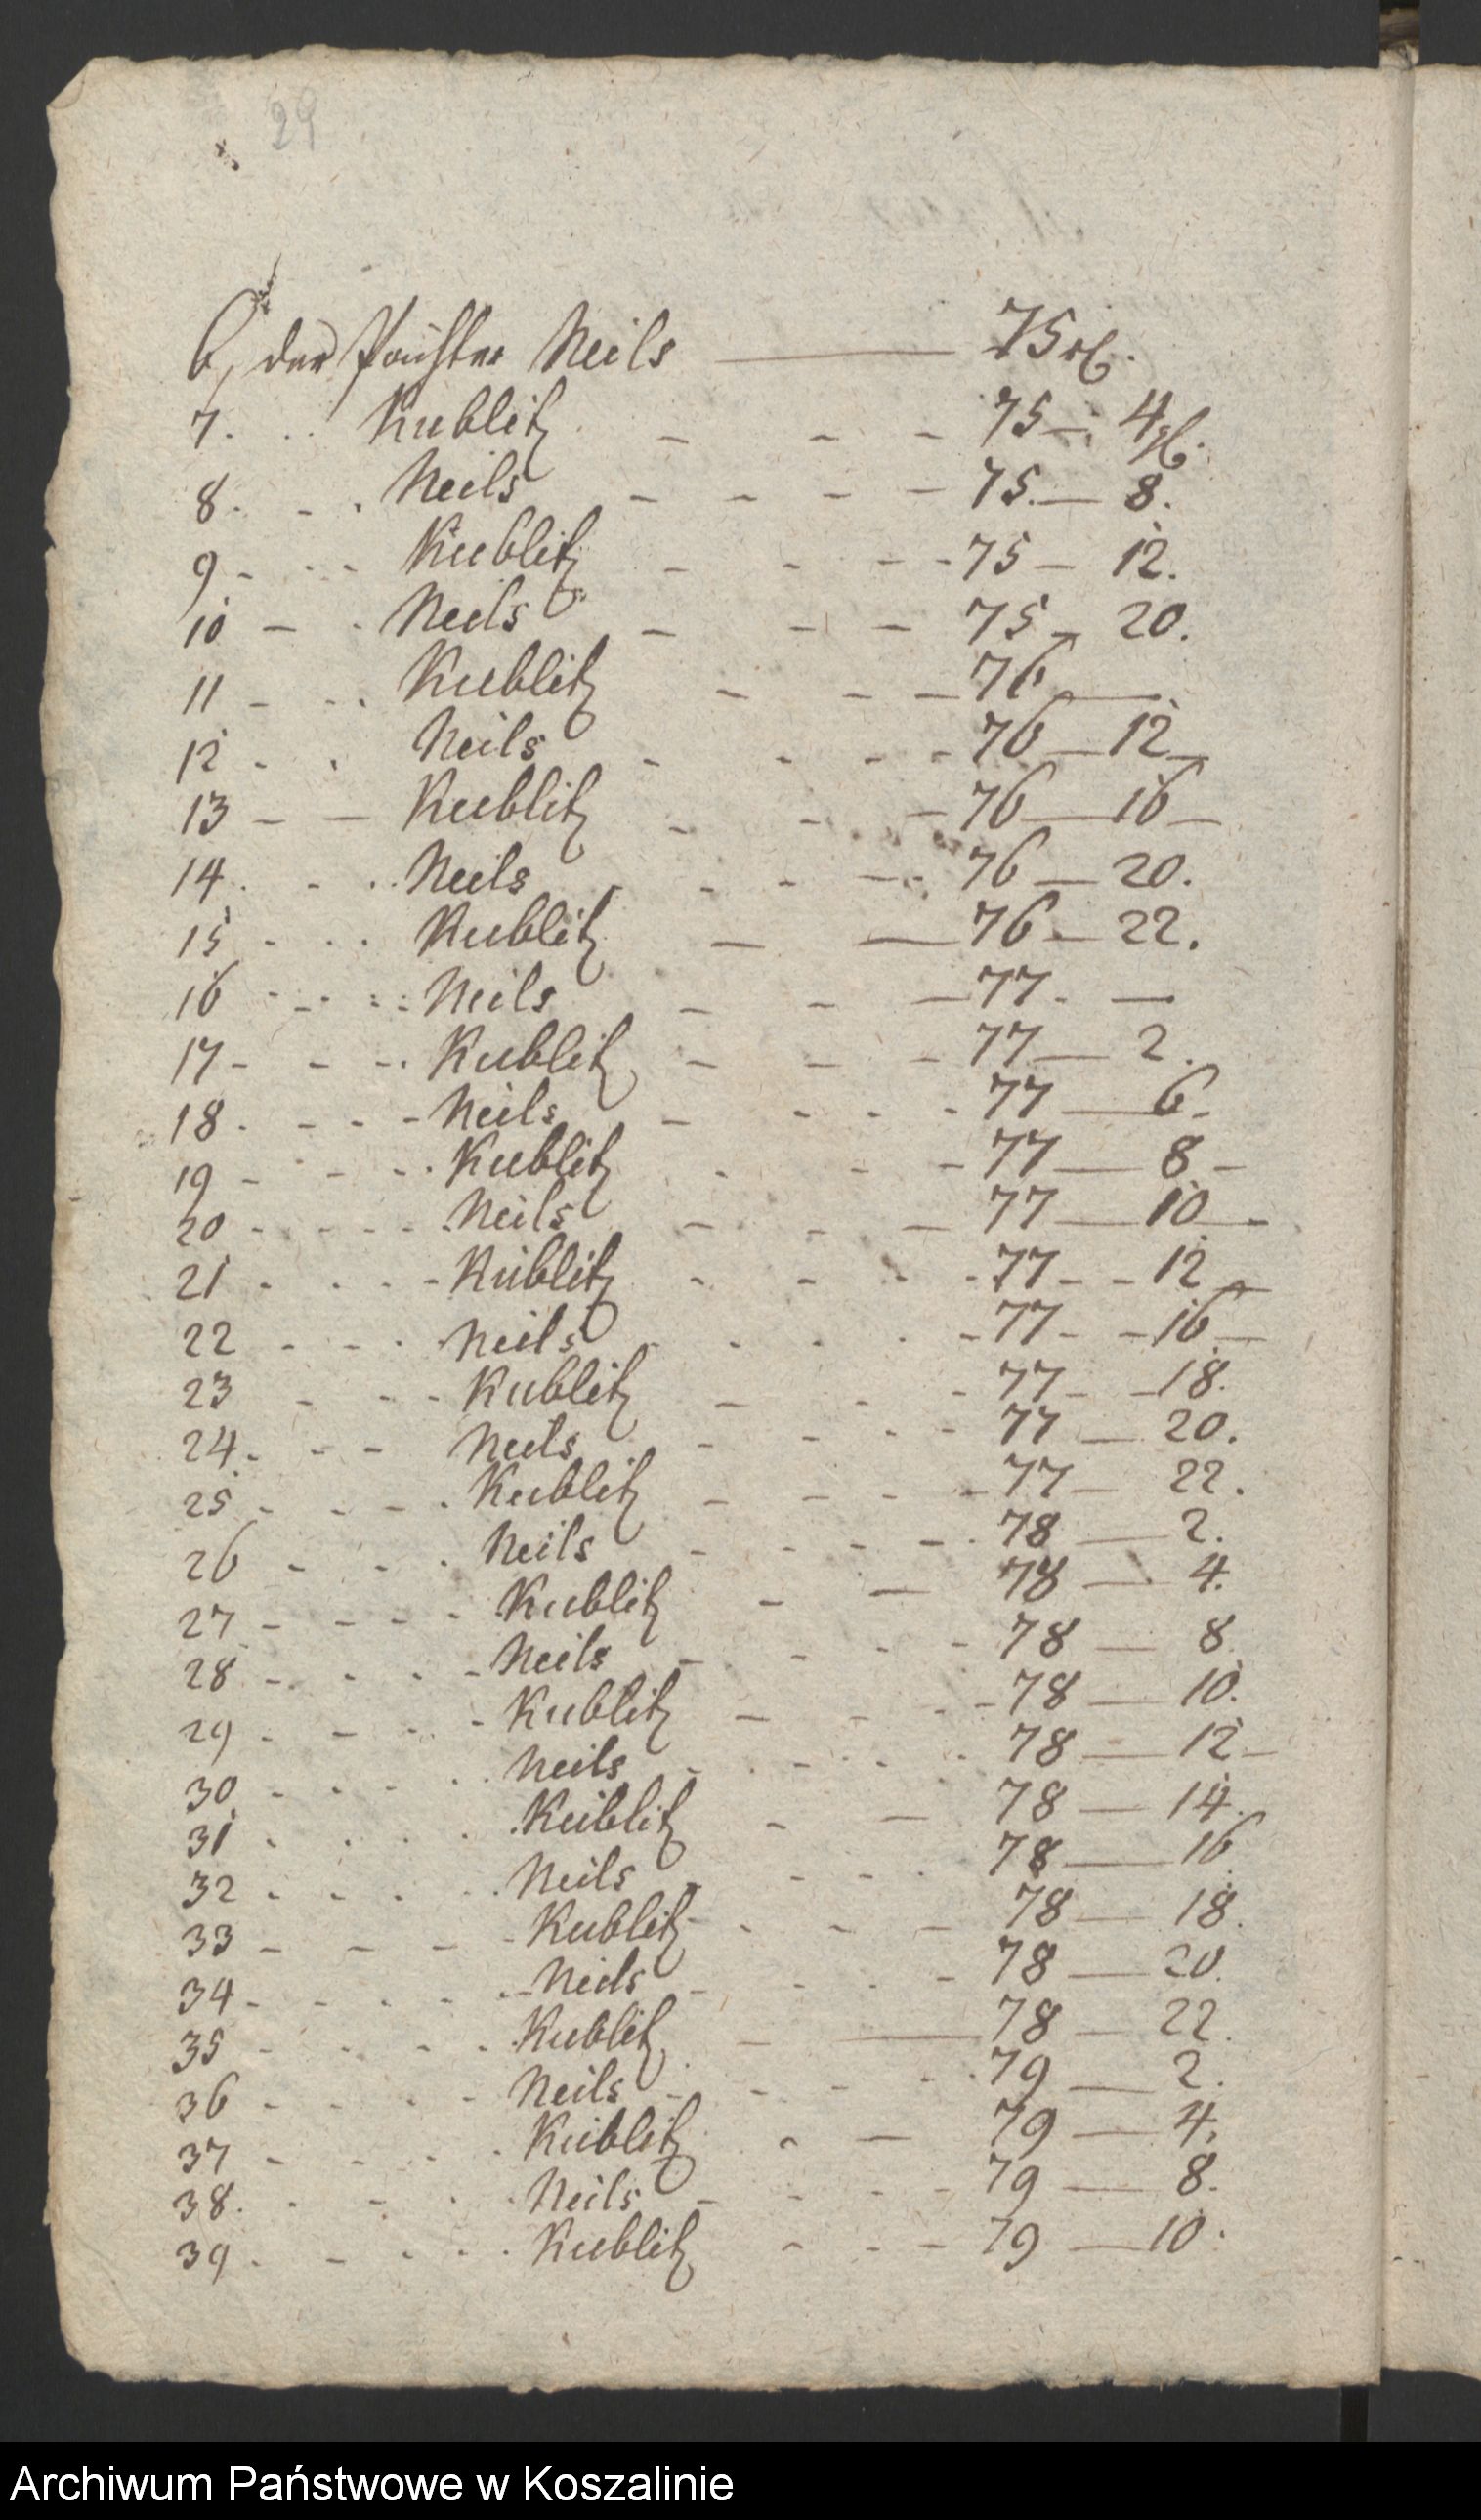 29
6, der Pächter Neils — 75 rl.
7. . . Kublitz - - - 75 — 4 gl.
8. - . Neils - - - - 75. — 8.
9 - . . - Kublitz - - - - 75 — 12.
10 — - . Neils — - — 75 - 20.
11 - - . . Kublitz - - — 76 —
12 . . Neils - - - - 76 — 12 —
13 — — Kublitz - - — 76 — 16 —
14. - . . Neils - - - 76 — 20.
15 - . . Kublitz — — 76 — 22.
16 - - . : : Neils - - — 77. —
17 - - - . Kublitz - - - 77 — 2.
18. - - - Neils - - - - 77 — 6 -
19 - - - . Kublitz - - - 77 — 8 -
20 - - - - Neils - - — 77 — 10 —
21 . . . - Kublitz - - - - 77 - - 12 —
22 . - . Neils - . . - 77 - - 16 —
23 - - - Kublitz - - - 77 - - 18.
24. - - Neils - - - - 77 — 20.
25 - - - . Kublitz - - - - 77 — 22.
26 - - . Neils - - - - 78 — 2.
27 - - - - Kublitz - — 78 — 4.
28 - . . - Neils - - - - 78 — 8
29 . - . - Kublitz - - - - 78 — 10.
30 - . - . Neils - . - . 78 — 12 -
31 . . . . Kublitz - — 78 — 14.
32 . . . . Neils - - - . 78 — 16
33 - - - - Kublitz - . - - 78 — 18.
34 - - - - Neils - - . - 78 — 20.
35 - . - . Kublitz - — 78 — 22.
36 - . . - Neils - - - - 79 — 2.
37 - . . . Kublitz - — 79 — 4.
38. . - . . Neils - - - - 79 — 8.
39 . - . . . Kublitz - - - 79 — 10.
Archiwum Państwowe w Koszalinie